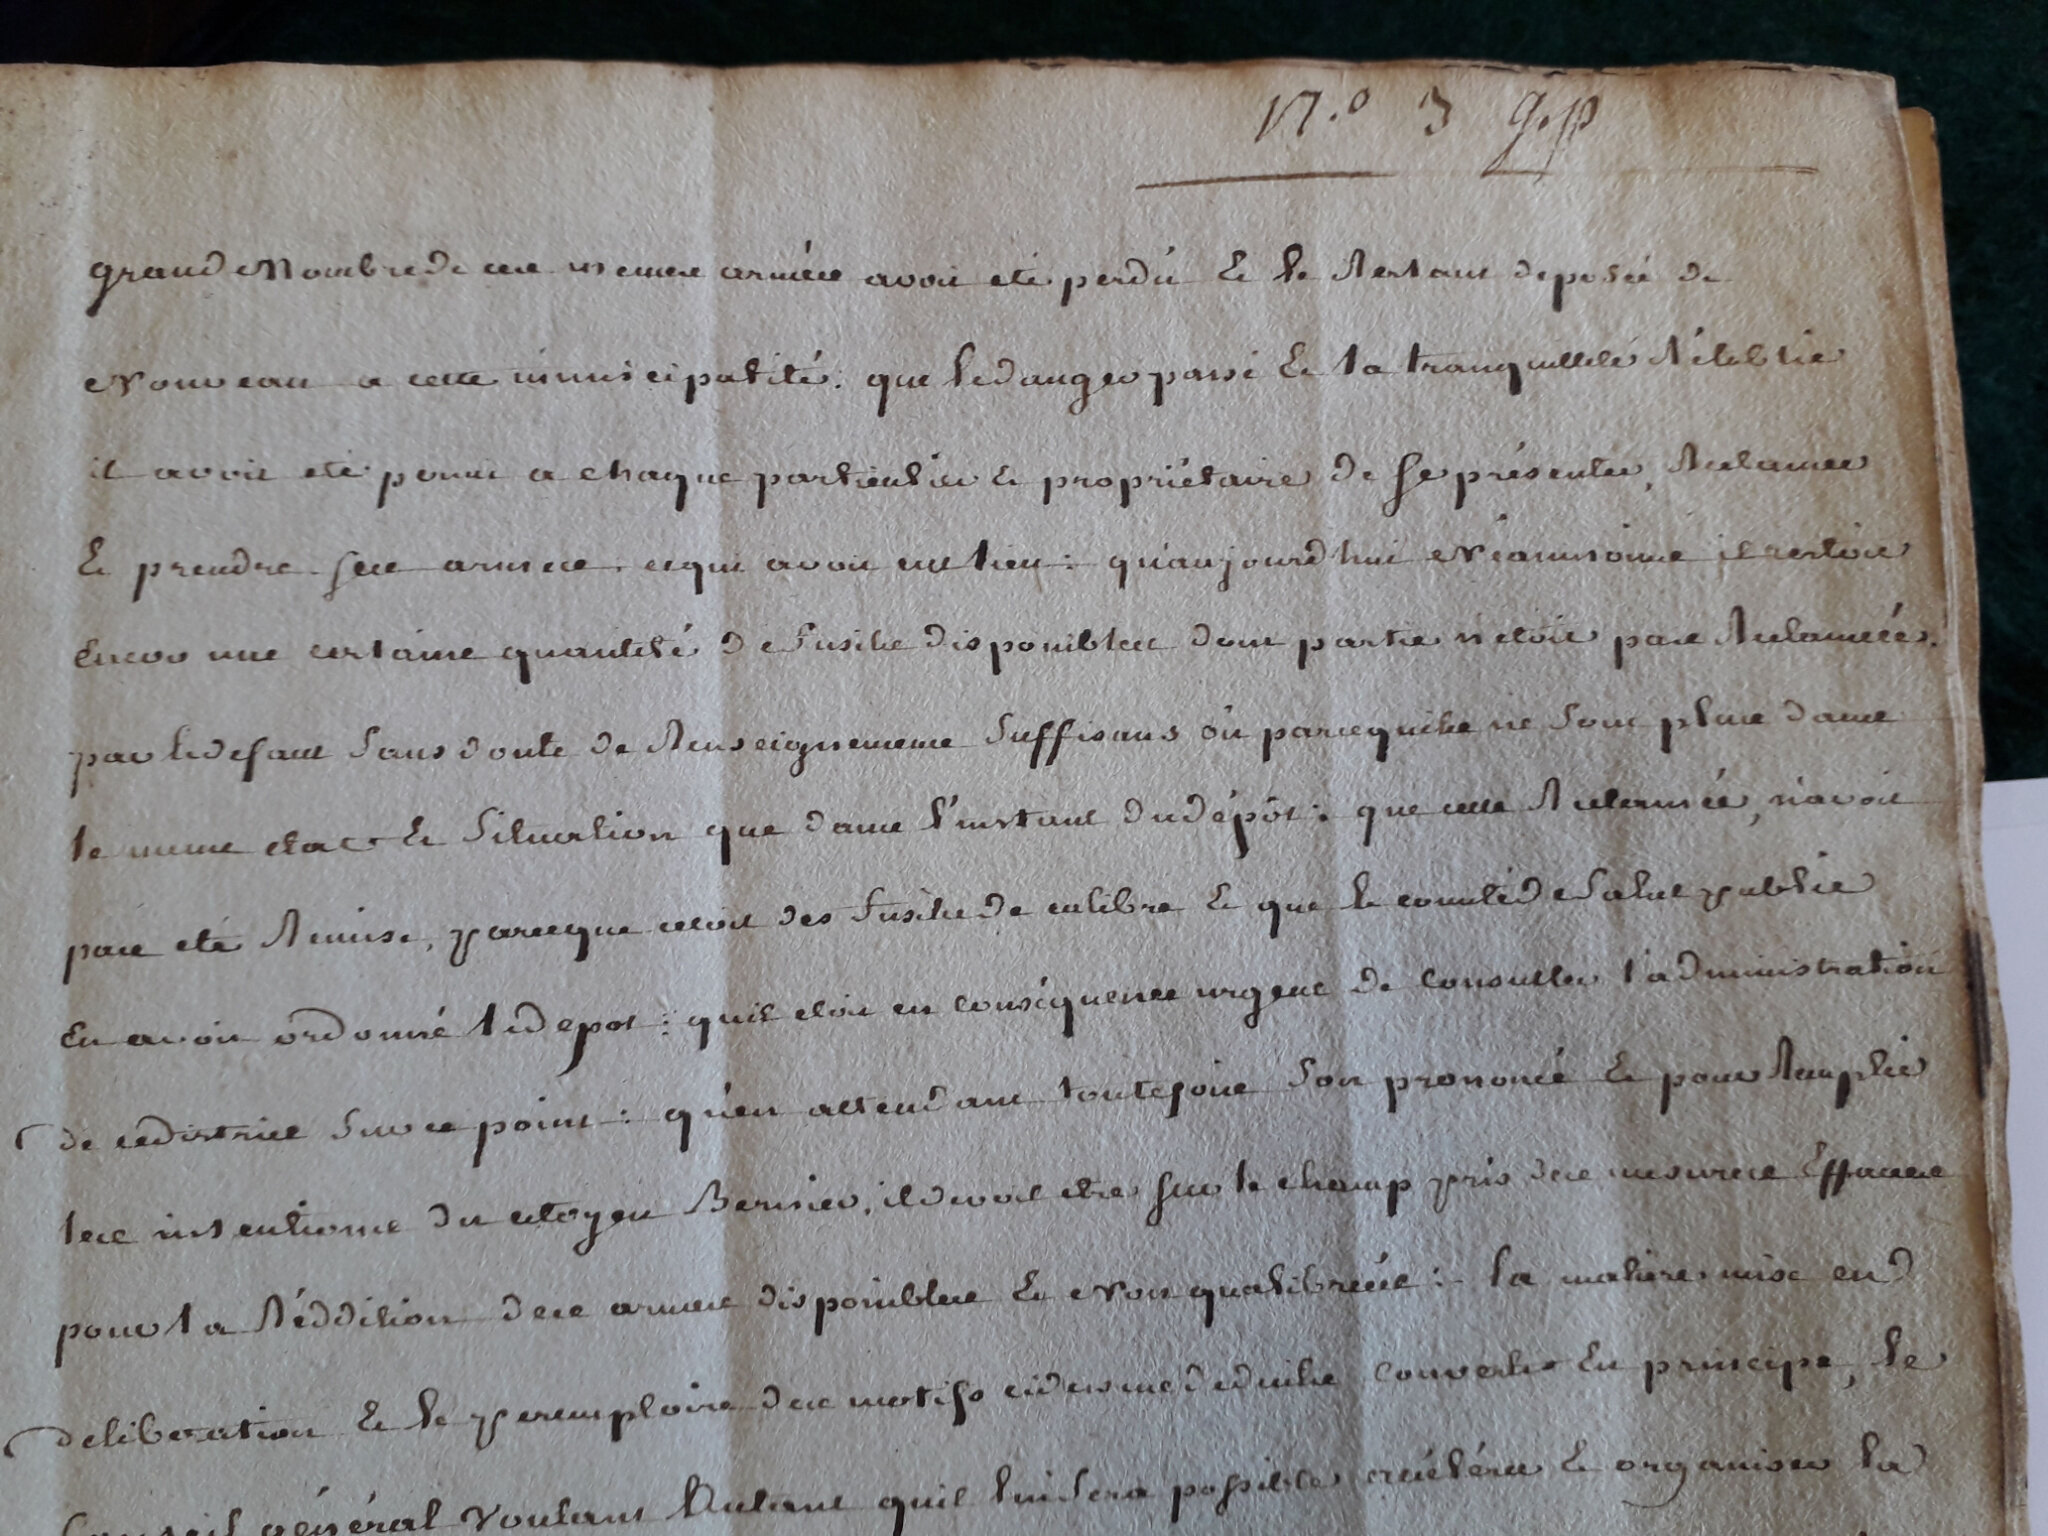 N.o 3 g.p
grand Nombre de ces memes armes avoit eté perdû & le Restant deposée de
Nouveau a cette municipalité: que le danger passé & la tranquillité Rétablie
il avoit eté permis a chaque particulier & propriétaire de se présenter, Reclamer
& prendre ses armes, ce qui avoit eut lieu: qu'aujourd'hui Néanmoins il restoit
Encor une certaine quantité de fusils disponibles dont partie n'etoit pas Reclamées.
par le defaut sans doute de Renseignemens suffisans où parcequ'ils ne sont plus dans
le meme etat & Situation que dans l'instant du dépôt: que cette Reclamée, n'avoit
pas eté Remise, parceque cetoit des fusils de calibre & que le comité de Salut public
En avoit ordonné le depot: quil etoit en conséquence urgent de Consulter l'administration
de ce district sur ce point: qu'en attendant toutefois son prononcé & pour Remplir
les intentions du citoyen Bernier, il devoit etre sur le champ pris des mesures Efficaces
pour la Réddition des armes disponibles & Non qualibrées: la matiere mise en
deliberation & le peremptoire des motifs cidessus deduits Convertis En principe, le
Conseil général voulant Autant quil lui sera possible accélérer & organiser la